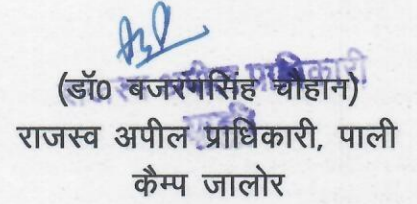 (डॉ0 बजरंगसिंह चौहान)
राजस्व अपील प्राधिकारी, पाली
कैम्प जालोर